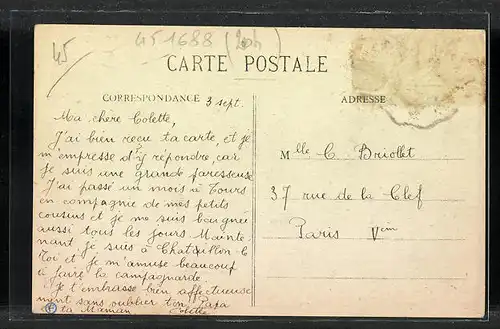 45
451688 (20h)
CARTE POSTALE
CORRESPONDANCE
3 sept.
Ma chère Colette,
J'ai bien reçu ta carte, et je
m'empresse d'y répondre, car
je suis une grande paresseuse
J'ai passé un mois à Tours
en compagnie de mes petits
cousins et je me suis baignée
aussi tous les jours. Mainte-
nant, je suis à Chatillon
et je m'amuse beaucoup
à faire la campagnarde.
Je t'embrasse bien affectueuse
ment sans oublier ton Papa
et ta Maman Colette
ADRESSE
Mlle C. Briollet
37 rue de la Clef
Paris Vem